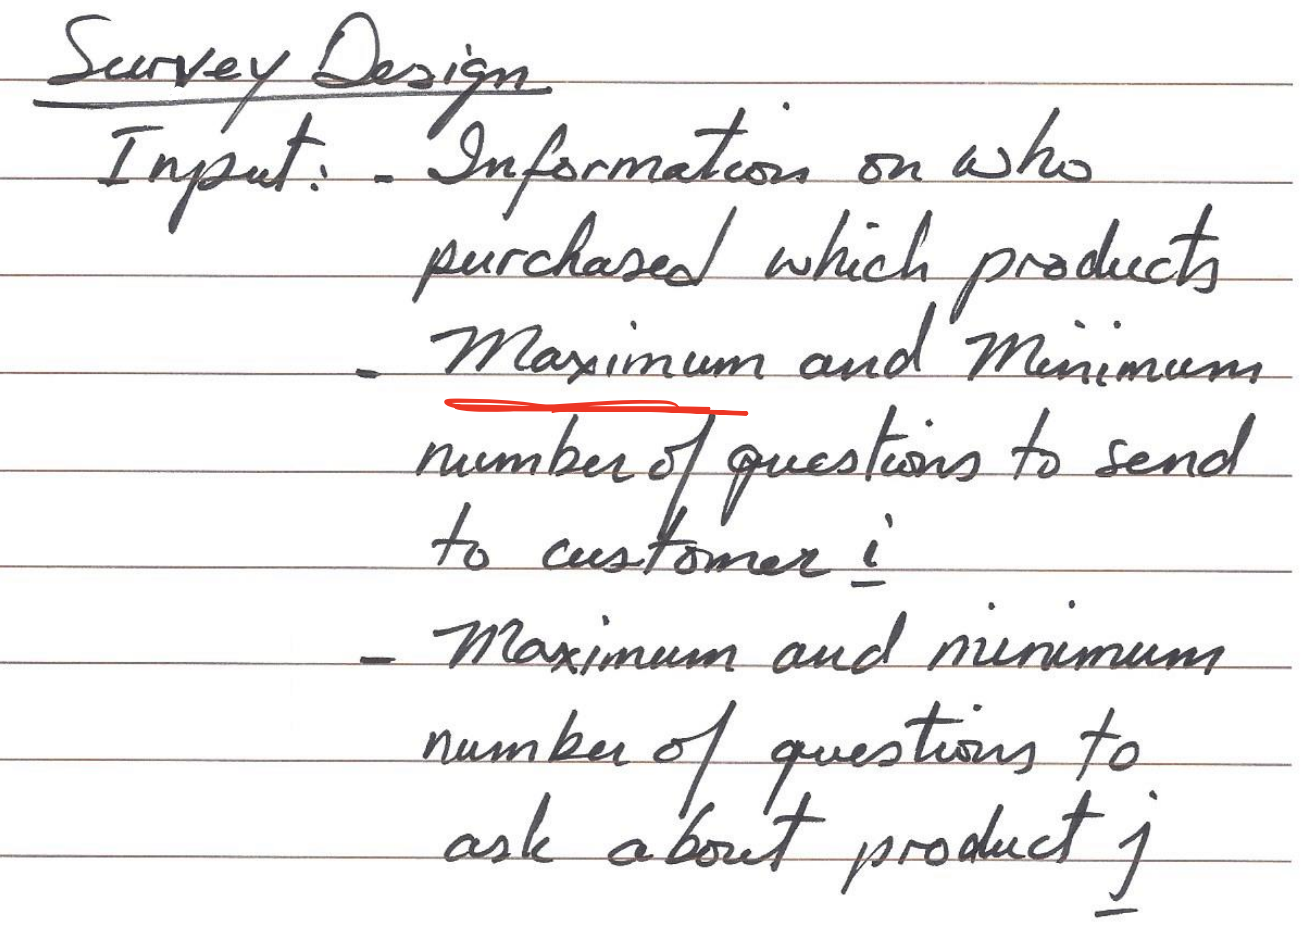 Survey Design
Input: - Information on who
purchased which products
- Maximum and Minimum
number of questions to send
to customer i
- Maximum and minimum
number of questions to
ask about product j